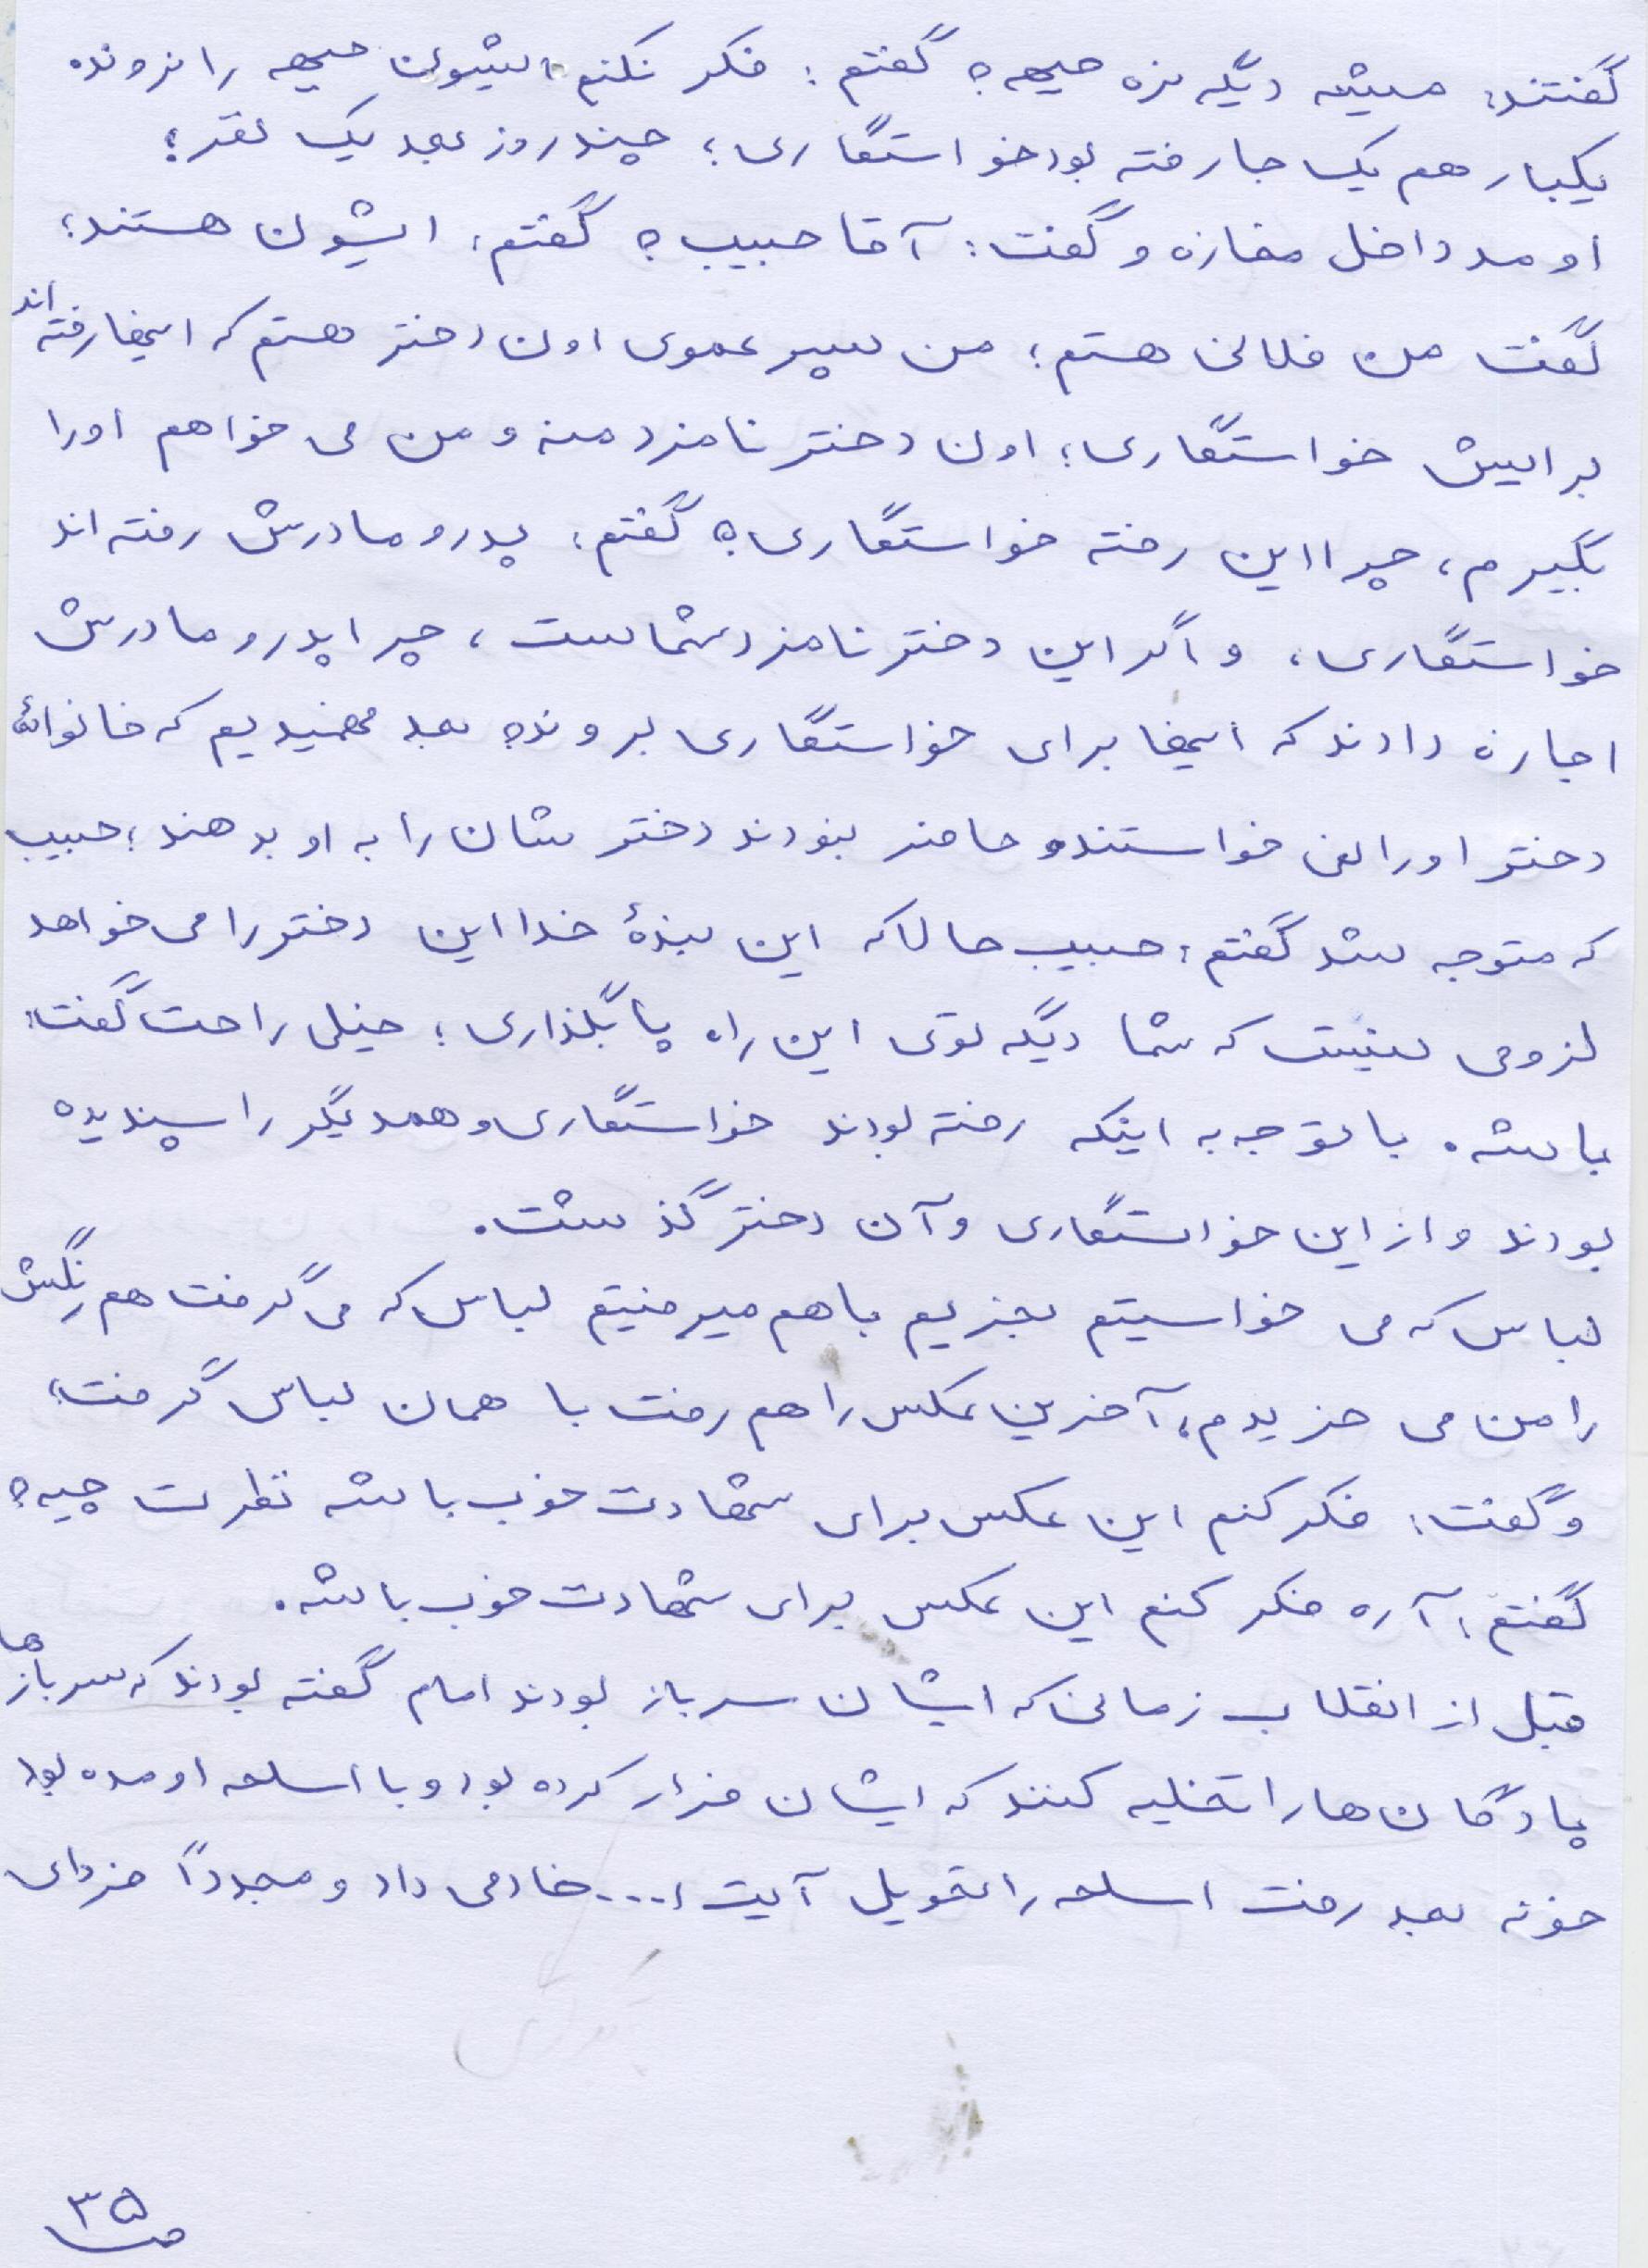 گفتند: میشه دیگه نره جبهه؟ گفتم: فکر نکنم ایشون جبهه را نرونده
یکبار هم یک جا رفته بود خواستگاری؛ چند روز بعد یک نفر؛
اومد داخل مغازه و گفت: آقا حبیب؟ گفتم: ایشون هستند؛
گفت من فلانی هستم؛ من پسر عموی اون دختر هستم که اینها رفته‌اند
برایش خواستگاری؛ اون دختر نامزد منه و من می خواهم اورا
بگیرم، چرا این رفته خواستگاری؟ گفتم: پدر و مادرش رفته اند
خواستگاری، و اگر این دختر نامزد شماست، چرا پدر و مادرش
اجازه دادند که اینها برای خواستگاری بروند؟ بعد فهمیدیم که خانوادۀ
دختر او را نمی خواستند و حاضر نبودند دختر شان را به او بدهند؛ حبیب
که متوجه شد گفتم: حبیب حالا که این بندۀ خدا این دختر را می خواهد
لزومی نیست که شما دیگه توی این راه پا بگذاری؛ خیلی راحت گفت:
باشه. با توجه به اینکه رفته بودند خواستگاری و همدیگر را پسندیده
بودند و از این خواستگاری و آن دختر گذشت.
لباس که می خواستیم بخریم با هم میرفتیم لباس که می گرفت هم رنگش
را من می خریدم، آخرین عکس را هم رفت با همان لباس گرفت،
و گفت: فکر کنم این عکس برای شهادت خوب باشه نظرت چیه؟
گفتم: آره فکر کنم این عکس برای شهادت خوب باشه.
قبل از انقلاب زمانی که ایشان سرباز بودند امام گفته بودند که سرباز ها
پادگان ها را تخلیه کنند که ایشان فرار کرده بود و با اسلحه اومده بود
خونه بعد رفت اسلحه را تحویل آیت ا... خادمی داد و مجدداً فردای
ص ۳۵